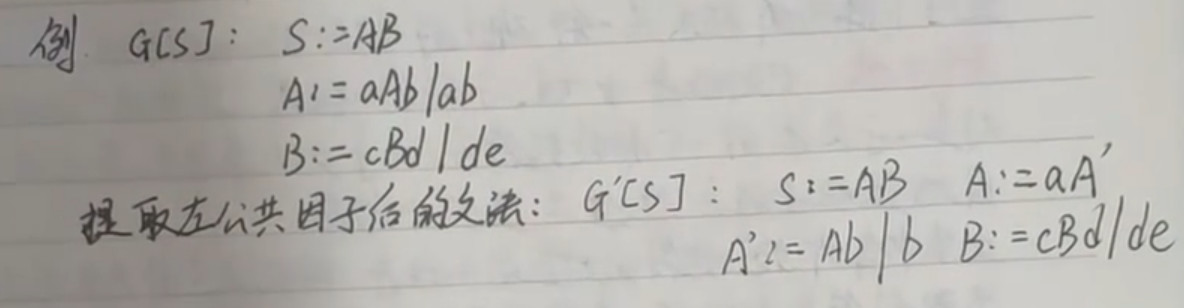 例. G[S]: S:=AB
A:=aAb|ab
B:=cBd|de
提取左公共因子后的文法: G'[S]: S:=AB A:=aA'
A':=Ab|b B:=cBd|de